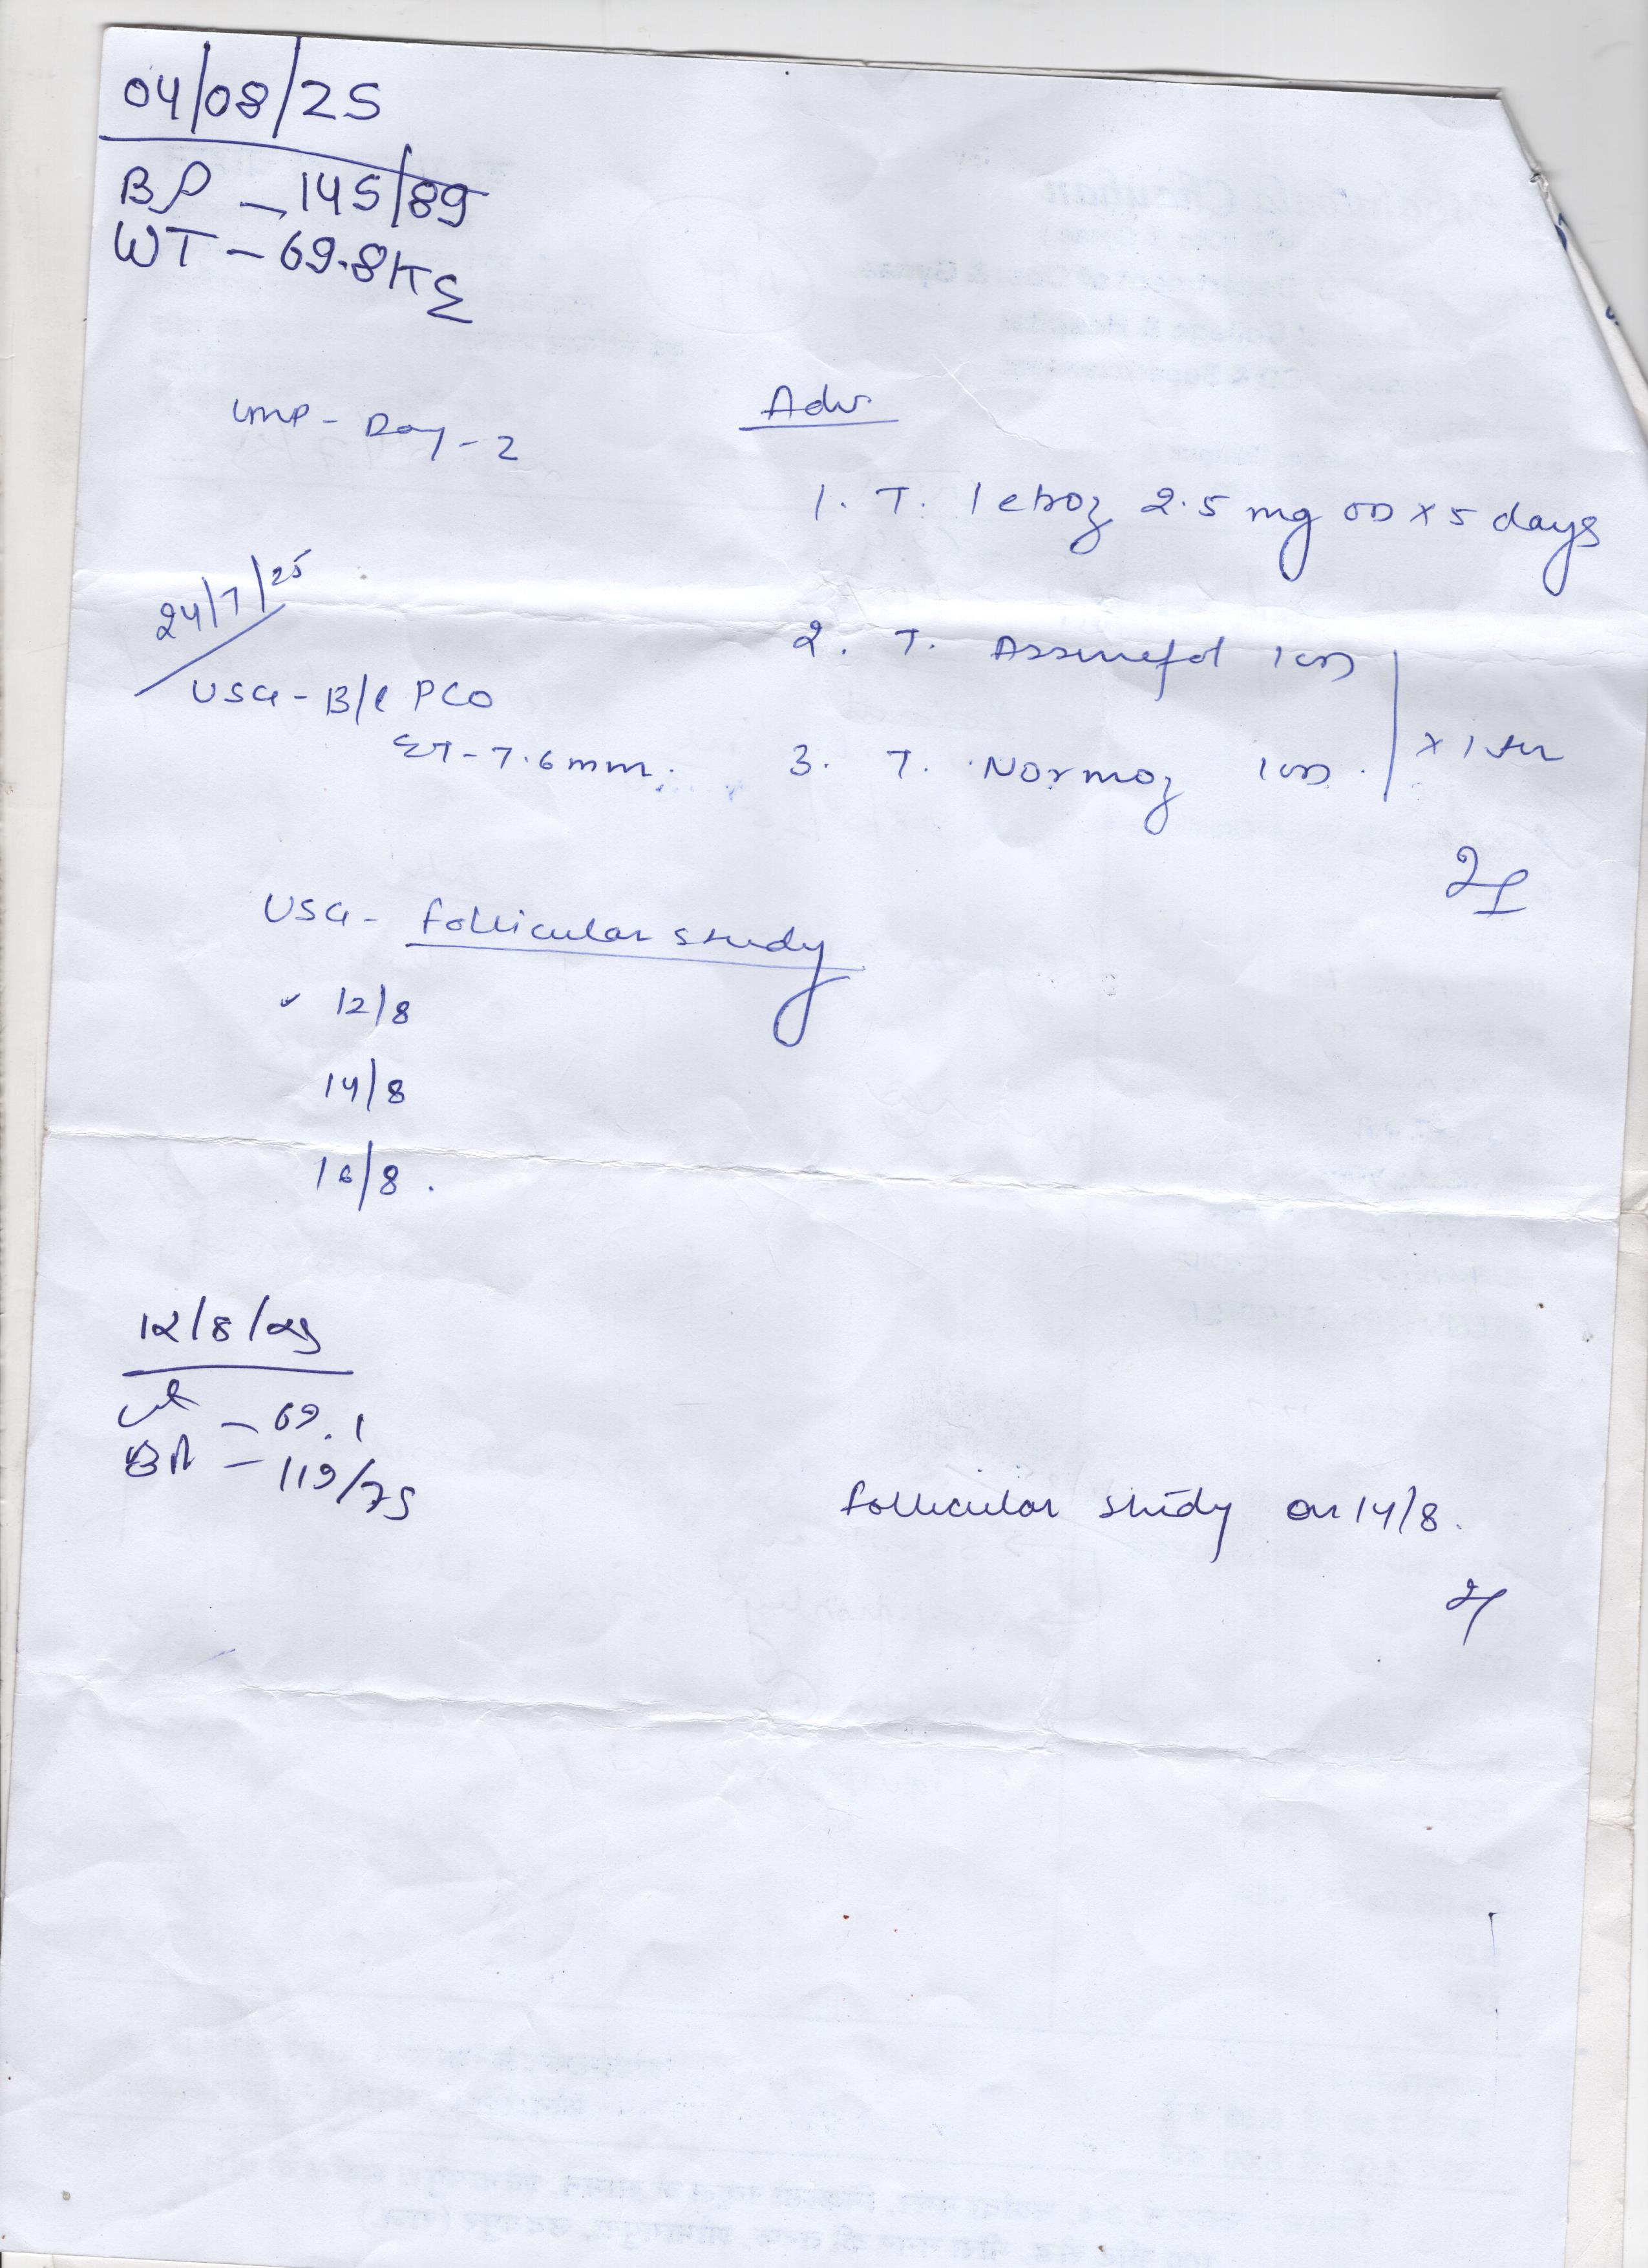 04/08/25
BP - 145/89
WT - 69.8 KG
LMP - Day - 2
Adv.
1. T. letroz 2.5 mg OD x 5 days
24/7/25
2. T. Assurefol 1 OD
USG - B/L PCO
ET - 7.6 mm.
3. T. Normoz 1 OD.
x 1
USG - follicular study
✓ 12/8
14/8
16/8.
12/8/25
wt - 69.1
BP - 119/75
follicular study on 14/8.